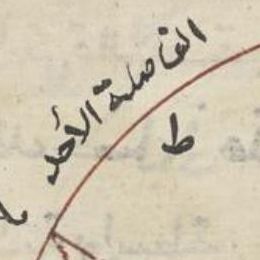 الفاصلة الأحد
ط